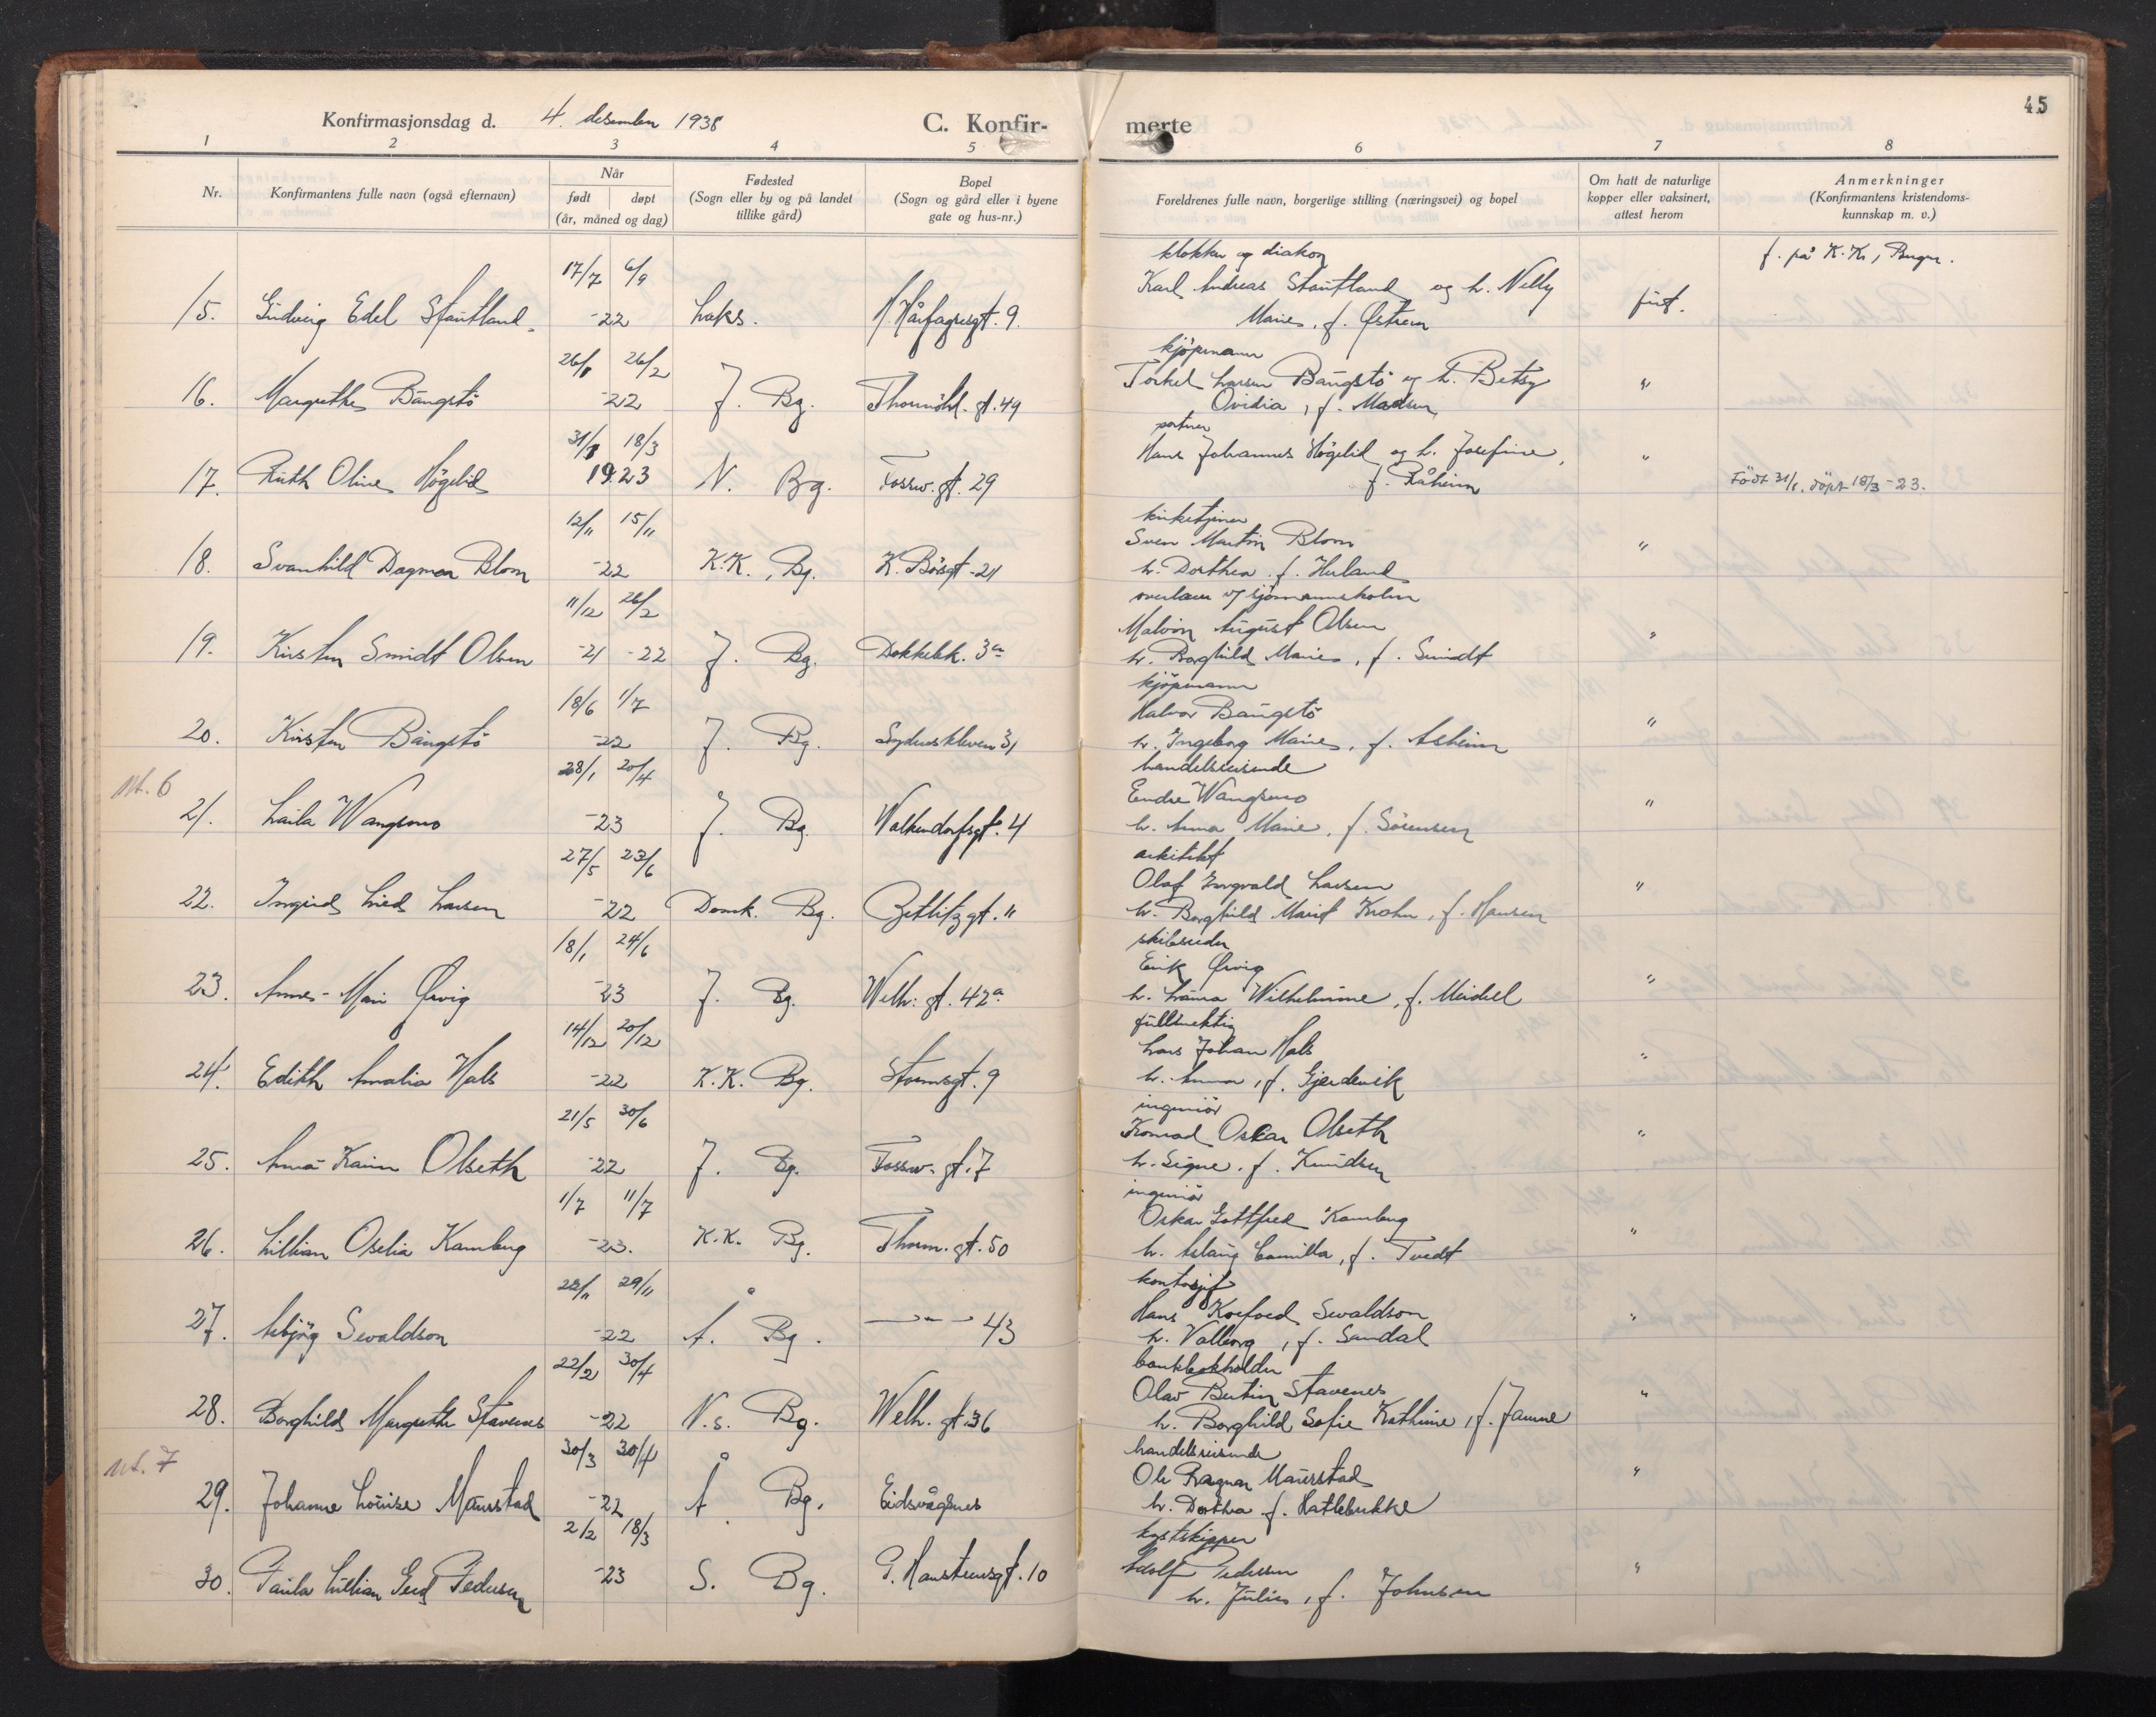 45
Konfirmasjonsdag d. 4. desember 1938 C. Konfir- merte
1 2 3 4 5 6 7 8
Nr.
Konfirmantens fulle navn (også efternavn)
Når
født døpt
(år, måned og dag)
Fødested
(Sogn eller by og på landet
tillike gård)
Bopel
(Sogn og gård eller i byene
gate og hus-nr.)
Foreldrenes fulle navn, borgerlige stilling (næringsvei) og bopel
Om hatt de naturlige
kopper eller vaksinert,
attest herom
Anmerkninger
(Konfirmantens kristendoms-
kunnskap m. v.)
17/7 6/9 klokker og diakon f. på K.K., Bergen.
15. Edel Stautland -22 Laks. H. Hårfagresgt. 9. Karl Andreas Stautland og h. Nelly
Marie, f. Østrem
26/1 26/2 kjøpmann
16. Margrethe Bångstø -22 J. Bg. Thormöhl. gt. 49 Torkel Larsen Bångstø og h. Betsy "
Ovidia, f. Madsen
31/1 18/3 portner
17. Ruth Oline Høgelid 1923 N. Bg. Fossw. gt. 29 Hans Johannes Høgelid og h. Josefine, "
f. Råheim Født 31/1, døpt 18/3 -23.
12/11 15/11 kirketjener
18. Svanhild Dagmar Blom -22 K.K., Bg. K. Børsgt. 21 Sven Martin Blom "
h. Dorthea f.
11/12 26/2
19. Kirsten Smidt Olsen -21 -22 J. Bg. Dokkebk. 3a August Olsen "
h. Borghild Marie, f. Smidt
18/6 1/7 kjøpmann
20. Kirsten Bångstø -22 J. Bg. Sydneskleven 31 Halvor Bångstø "
h. Ingeborg Marie, f. Asheim
nt. 6
28/1 20/4 handelsreisende
21. Laila Wangsmo -23 J. Bg. Walkendorfsgt. 4 Endre Wangsmo "
h. Anna Marie, f. Sørensen
27/5 23/6 arkitekt
22. Ingrid Lied Larsen -22 Domk. Bg. Getlitzgt. 11 Olaf Ingvald Larsen "
h. Borghild Marit Krohn, f. Hansen
18/1 24/6 skibsreder
23. Anne-Mari Ørvig -23 J. Bg. Welh. gt. 42a Erik Ørvig "
h. Laura Wilhelmine, f. Meidell
14/12 20/12 fullmektig
24. Edith Amalia Hals -22 K.K. Bg. Stormsgt. 9 Lars Johan Hals "
h. Anna, f. Gjerdevik
21/5 30/6 ingeniør
25. Karin Olseth -22 J. Bg. Fossw. gt. 7 Konrad Oskar Olseth "
h. Signe, f. Knudsen
1/7 11/7 ingeniør
26. Lillian Oselia Kamberg -23. K.K. Bg. Thorm. gt. 50 Oskar Gottfred Kamberg "
h. Aslaug Camilla, f. Tvedt
22/11 29/11 kontorsjef
27. Asbjørg Sewaldson -22 Å. Bg. — " — 43 Hans Koefoed Sewaldson "
h. Valborg, f. Sandal
22/2 30/4 bankbokholder
28. Borghild Margrethe Stavenes -22 N.s. Bg. Welh. gt. 36 Olav Bertin Stavenes "
h. Borghild Sofie Kathrine, f. Janne
nt. 7
30/3 30/4 handelsreisende
29. Johanne Louise Maurstad -22 Å Bg. Eidsvågnes Ole Ragnar Maurstad "
h. Dorthea f. Hatlebrekke
2/2 18/3 kystskipper
30. Paula Lillian Gerd Pedersen -23 S. Bg. gt. 10 Adolf Pedersen "
h. Julie, f. Johnsen